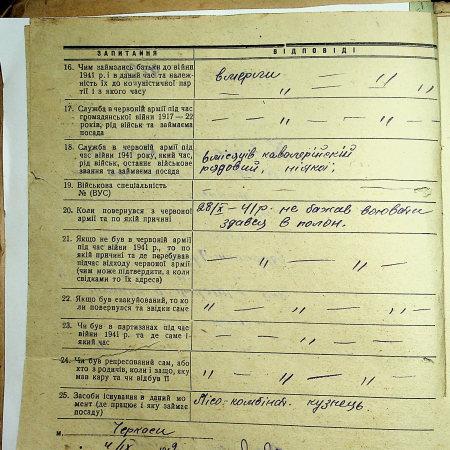 ЗАПИТАННЯ ВІДПОВІДІ
16. Чим займались батьки до війни
1941 р. і в даний час та належ-
ність їх до комуністичної пар-
тії і з якого часу
вмерли — „ —
— „ — — „ —
17. Служба в червоній армії під час
громадянської війни 1917—22
років, рід військ та займаєма
посада
— — „ — — „ —
18. Служба в червоній армії під
час війни 1941 року, який час,
рід військ, останнє військове
звання та займаєма посада
6 місяців
рядовий,
19. Військова спеціальність
№ (ВУС)
20. Коли повернувся з червоної
армії та по якій причині
28/ІХ—41р. не бажав воювати
здавсь в полон.
21. Якщо не був в червоній армії
під час війни 1941 р., то по
якій причині та де перебував
підчас відходу червоної армії
(чим може підтвердити, а коли
свідками то їх адреса)
— „ — „ —
22. Якщо був евакуйований, то ко-
ли повернувся та звідки саме
„ — „ — „ —
23. Чи був в партизанах під час
війни 1941 р. та де саме і
який час
— „ — „ —
24. Чи був репресований сам, або
хто з родичів, коли і защо, яку
мав кару та чи відбув її
„ — „ — „ —
25. Засоби існування в даний мо-
мент (де працює і яку займає
посаду)
Лісо-комбінат. кузнець.
м. Черкаси
4/ІХ